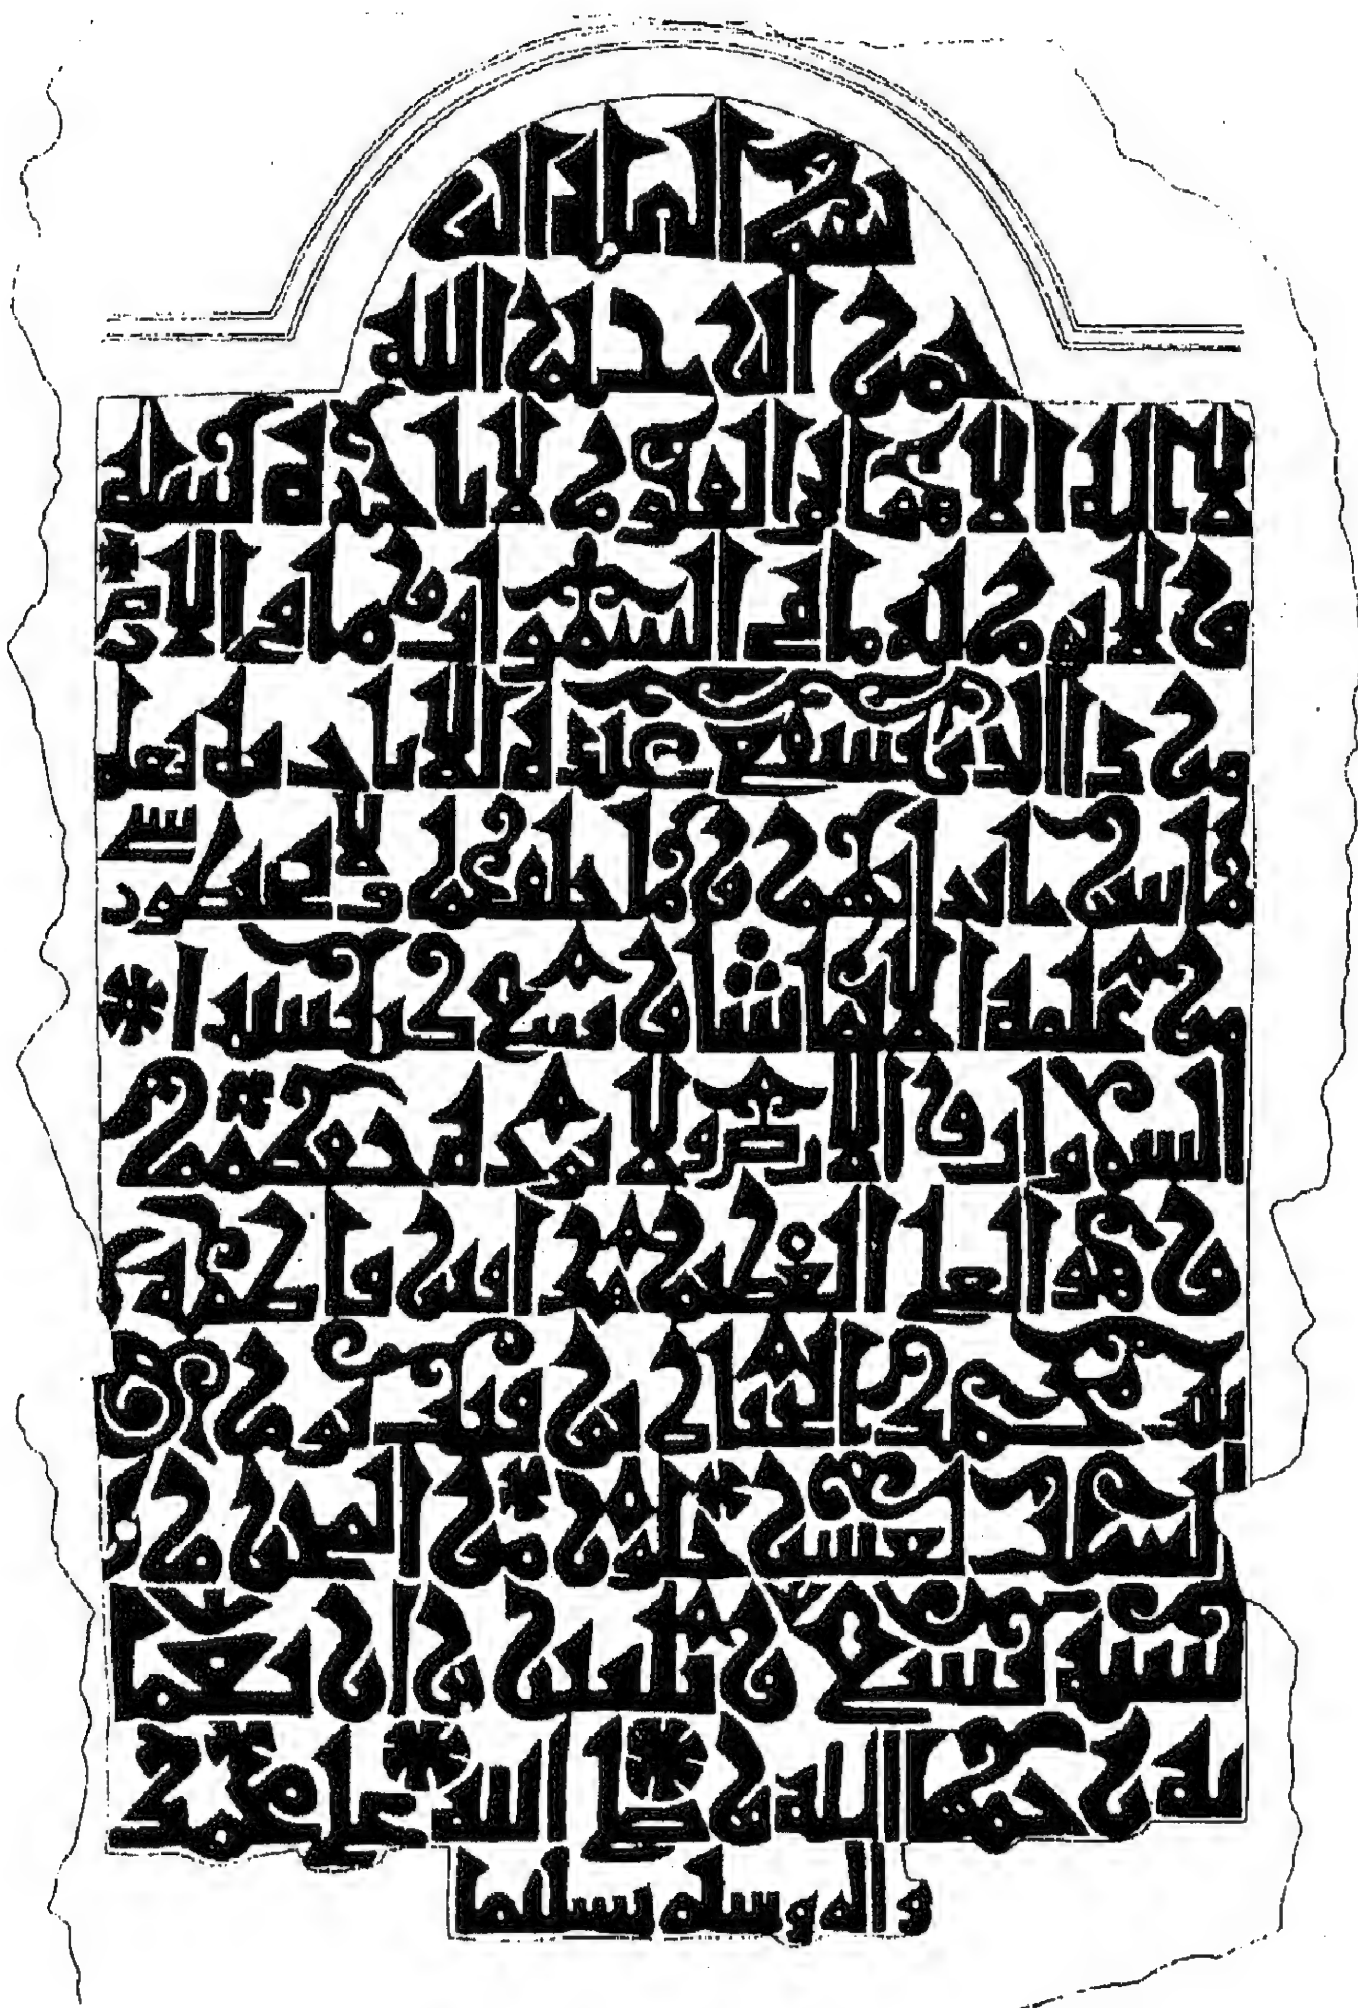 بسم الله الر
حمن الرحيم الله
لا اله الا هو الحي القيوم لا تاخذه سنه
ولا نوم له ما في السموات وما في الارض
من ذا الذي يشفع عنده الا باذنه يعلم
ما بين ايديهم وما خلفهم ولا يحيطون بشي
من علمه الا بما شا وسع كرسيه ا
لسموات والارض ولا يوده حفظهما
وهو العلي العظيم توفيت فاطمه
بنت محمد يوم
خلون من المحرم من
سنه تسع وتسعين
رحمها الله وصلى الله على محمد
واله وسلم تسليما